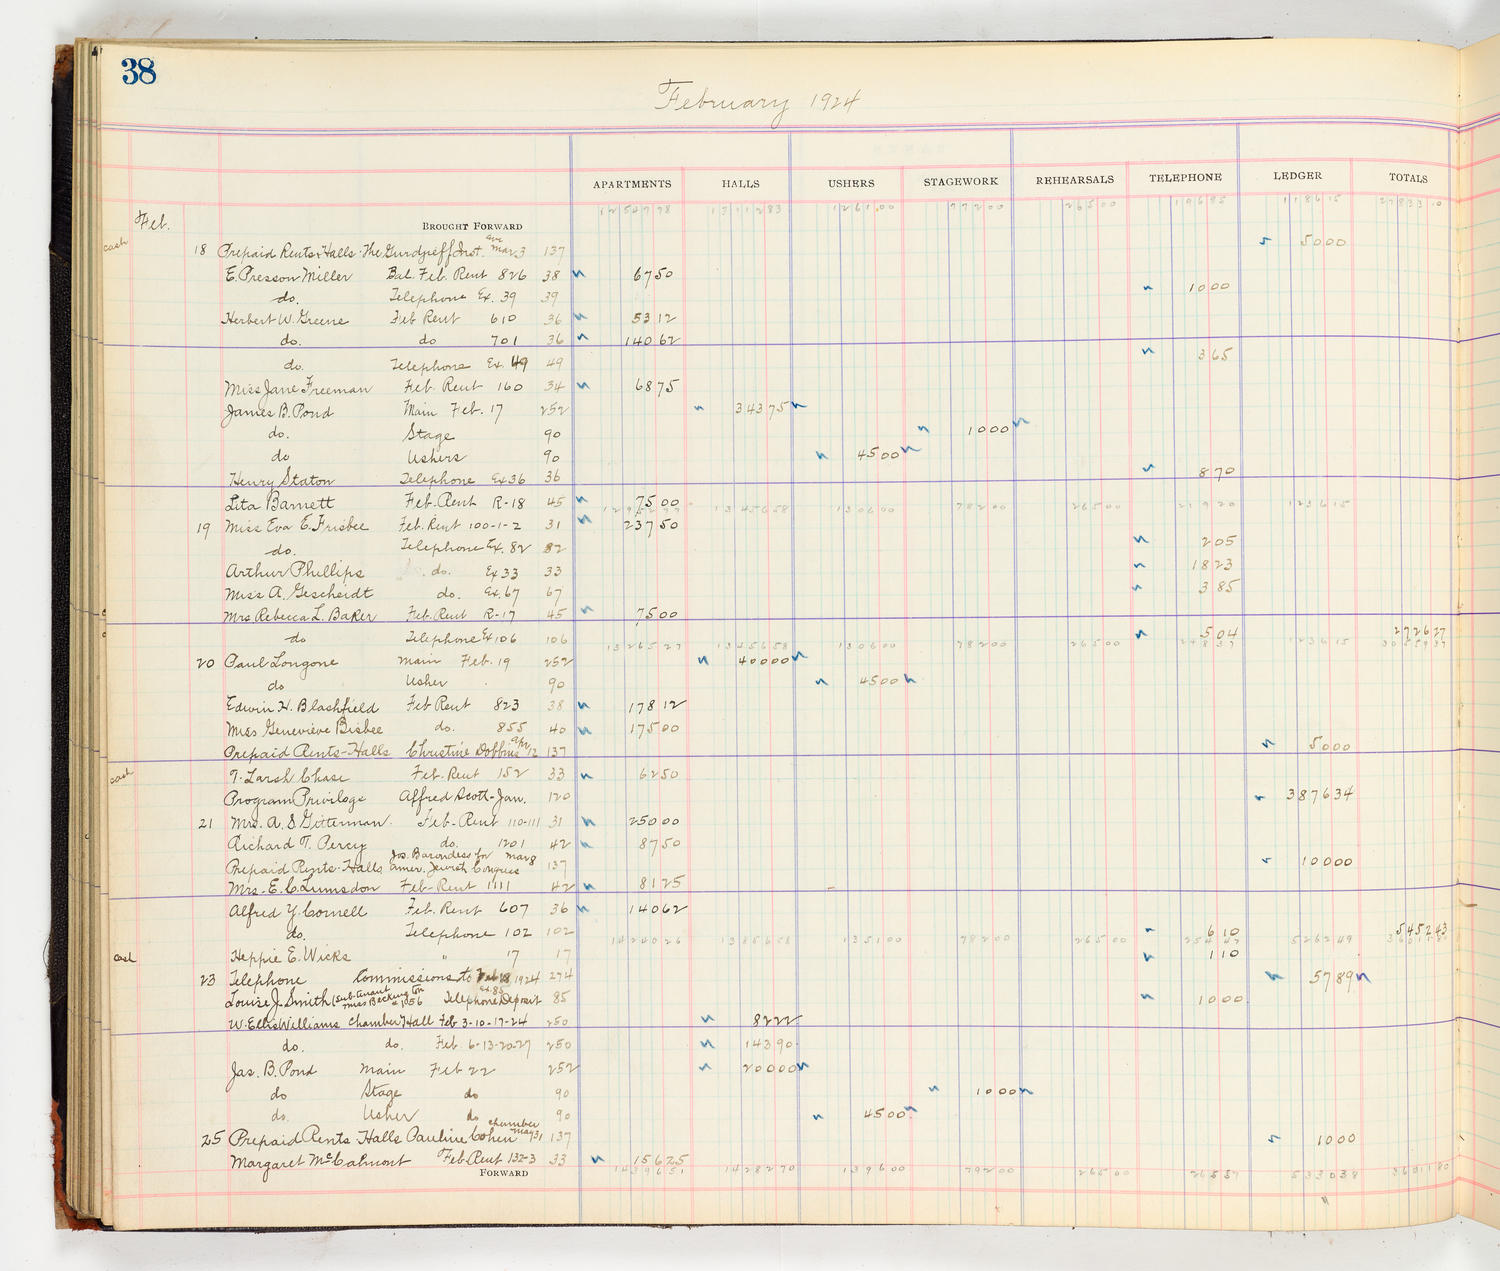 38
February 1924
APARTMENTS HALLS USHERS STAGEWORK REHEARSALS TELEPHONE LEDGER TOTALS
Feb. BROUGHT FORWARD 1254798 1311283 126100 77200 26500 19695 118615
cash 18 Prepaid Rents-Halls-The Gurdjieff Inst. eve Mar 3 137 5000
E. Presson Miller Bal. Feb. Rent 826 38 6750
do. Telephone Ex. 39 39 1000
Herbert W. Greene Feb Rent 610 36 5312
do. do 701 36 14062
do. Telephone Ex. 49 49 365
Miss Jane Freeman Feb. Rent 160 34 6875
James B. Pond Main Feb. 17 252 34375
do. Stage 90 1000
do Ushers 90 4500
Henry Staton Telephone Ex 36 36 870
Lita Barnett Feb. Rent R-18 45 7500
1345658 130600 78200 26500 21920 123615
19 Miss Eva E. Frisbee Feb. Rent 100-1-2 31 23750
do. Telephone Ex. 82 82 205
Arthur Phillips do. Ex 33 33 1823
Miss A. Gescheidt do. Ex. 67 67 385
Mrs Rebecca L. Baker Feb. Rent R-17 45 7500
do Telephone Ex 106 106 504 272627
1326527 1345658 130600 78200 26500 24837 123615 3055937
20 Paul Longone Main Feb. 19 252 40000
do Usher 90 4500
Edwin H. Blashfield Feb Rent 823 38 17812
Miss Genevieve Bisbee do. 855 40 17500
Prepaid Rents-Halls Christine Dobbins Apr 12 137 5000
cash T. Larsh Chase Feb. Rent 152 33 6250
Program Privilege Alfred Scott-Jan. 120 387634
21 Mrs. A. S Gitterman Feb-Rent 110-111 31 25000
Richard T. Percy do. 1201 42 8750
Prepaid Rents-Halls Jos. Barondess for Mar 8 Amer. Jewish Congress 137 10000
Mrs. E. C Lumsdon Feb-Rent 1111 42 8125
Alfred Y. Cornell Feb. Rent 607 36 14062
do. Telephone 102 102 610 545243
1424026 1385658 135100 78200 26500 25447 526249
cash Heppie E. Wicks " 17 17 110
23 Telephone Commissions to Feb 1924 274 5789
Louise J. Smith (subtenant Miss Beckington # 1056 Telephone Ex. 85 Deposit 85 1000
W. Ellis Williams Chamber Hall Feb 3-10-17-24 250 8222
do. do. Feb 6-13-20-27 250 14390
Jas. B. Pond Main Feb 22 252 20000
do Stage do 90 1000
do. Usher do 90 4500
25 Prepaid Rents Halls Pauline Cohen chamber May 31 137 1000
Margaret McCalmont Feb. Rent 132-3 33 15625
FORWARD 1439651 1428270 139600 79200 26500 26557 533038 3601180